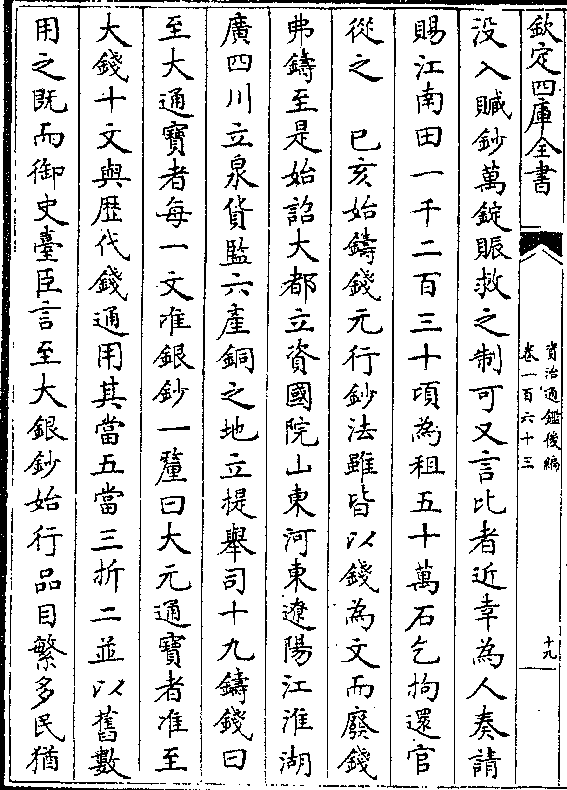 欽定四庫全書
資治通鑑後編
卷一百六十三
十九
没入贓鈔萬錠賑救之制可又言比者近幸為人奏請
賜江南田一千二百三十頃為租五十萬石乞拘還官
從之　已亥始鑄錢元行鈔法雖皆以錢為文而廢錢
弗鑄至是始詔大都立資國院山東河東遼陽江淮湖
廣四川立泉貨監六產銅之地立提舉司十九鑄錢曰
至大通寶者每一文准銀鈔一釐曰大元通寶者准至
大錢十文與歷代錢通用其當五當三折二並以舊數
用之既而御史臺臣言至大銀鈔始行品目繁多民猶